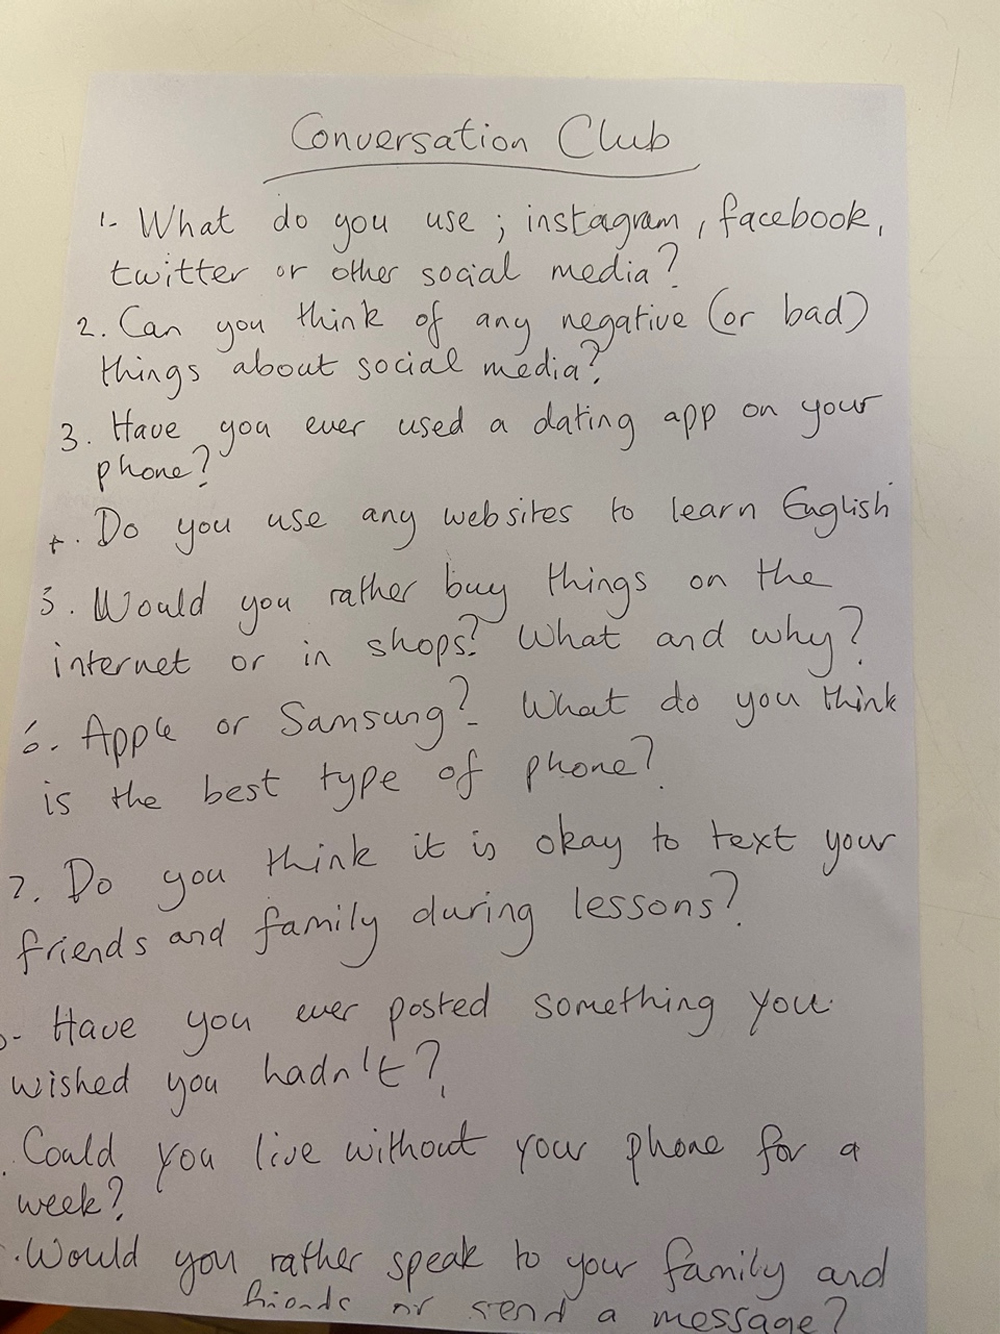 Conversation Club
1- What do you use ; instagram, facebook,
twitter or other social media?
2. Can you think of any negative (or bad)
things about social media?
3. Have you ever used a dating app on your
phone?
4. Do you use any websites to learn English
5. Would you rather buy things on the
internet or in shops? What and why?
6. Apple or Samsung? What do you think
is the best type of phone?
7. Do you think it is okay to text your
friends and family during lessons?
- Have you ever posted something you
wished you hadn't?
. Could you live without your phone for a
week?
. Would you rather speak to your family and
friends or send a message?